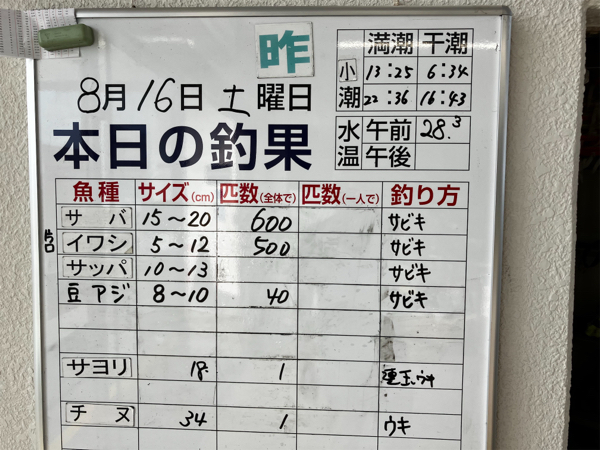 昨
8月16日土曜日
本日の釣果
満潮 干潮
小潮 13:25 6:34
22:36 16:43
水温 午前 28.3
午後
魚種 サイズ(cm) 匹数(全体で) 匹数(一人で) 釣り方
サバ 15～20 600 サビキ
片口イワシ 5～12 500 サビキ
サッパ 10～13 サビキ
豆アジ 8～10 40 サビキ
サヨリ 18 1 連玉ウキ
チヌ 34 1 ウキ